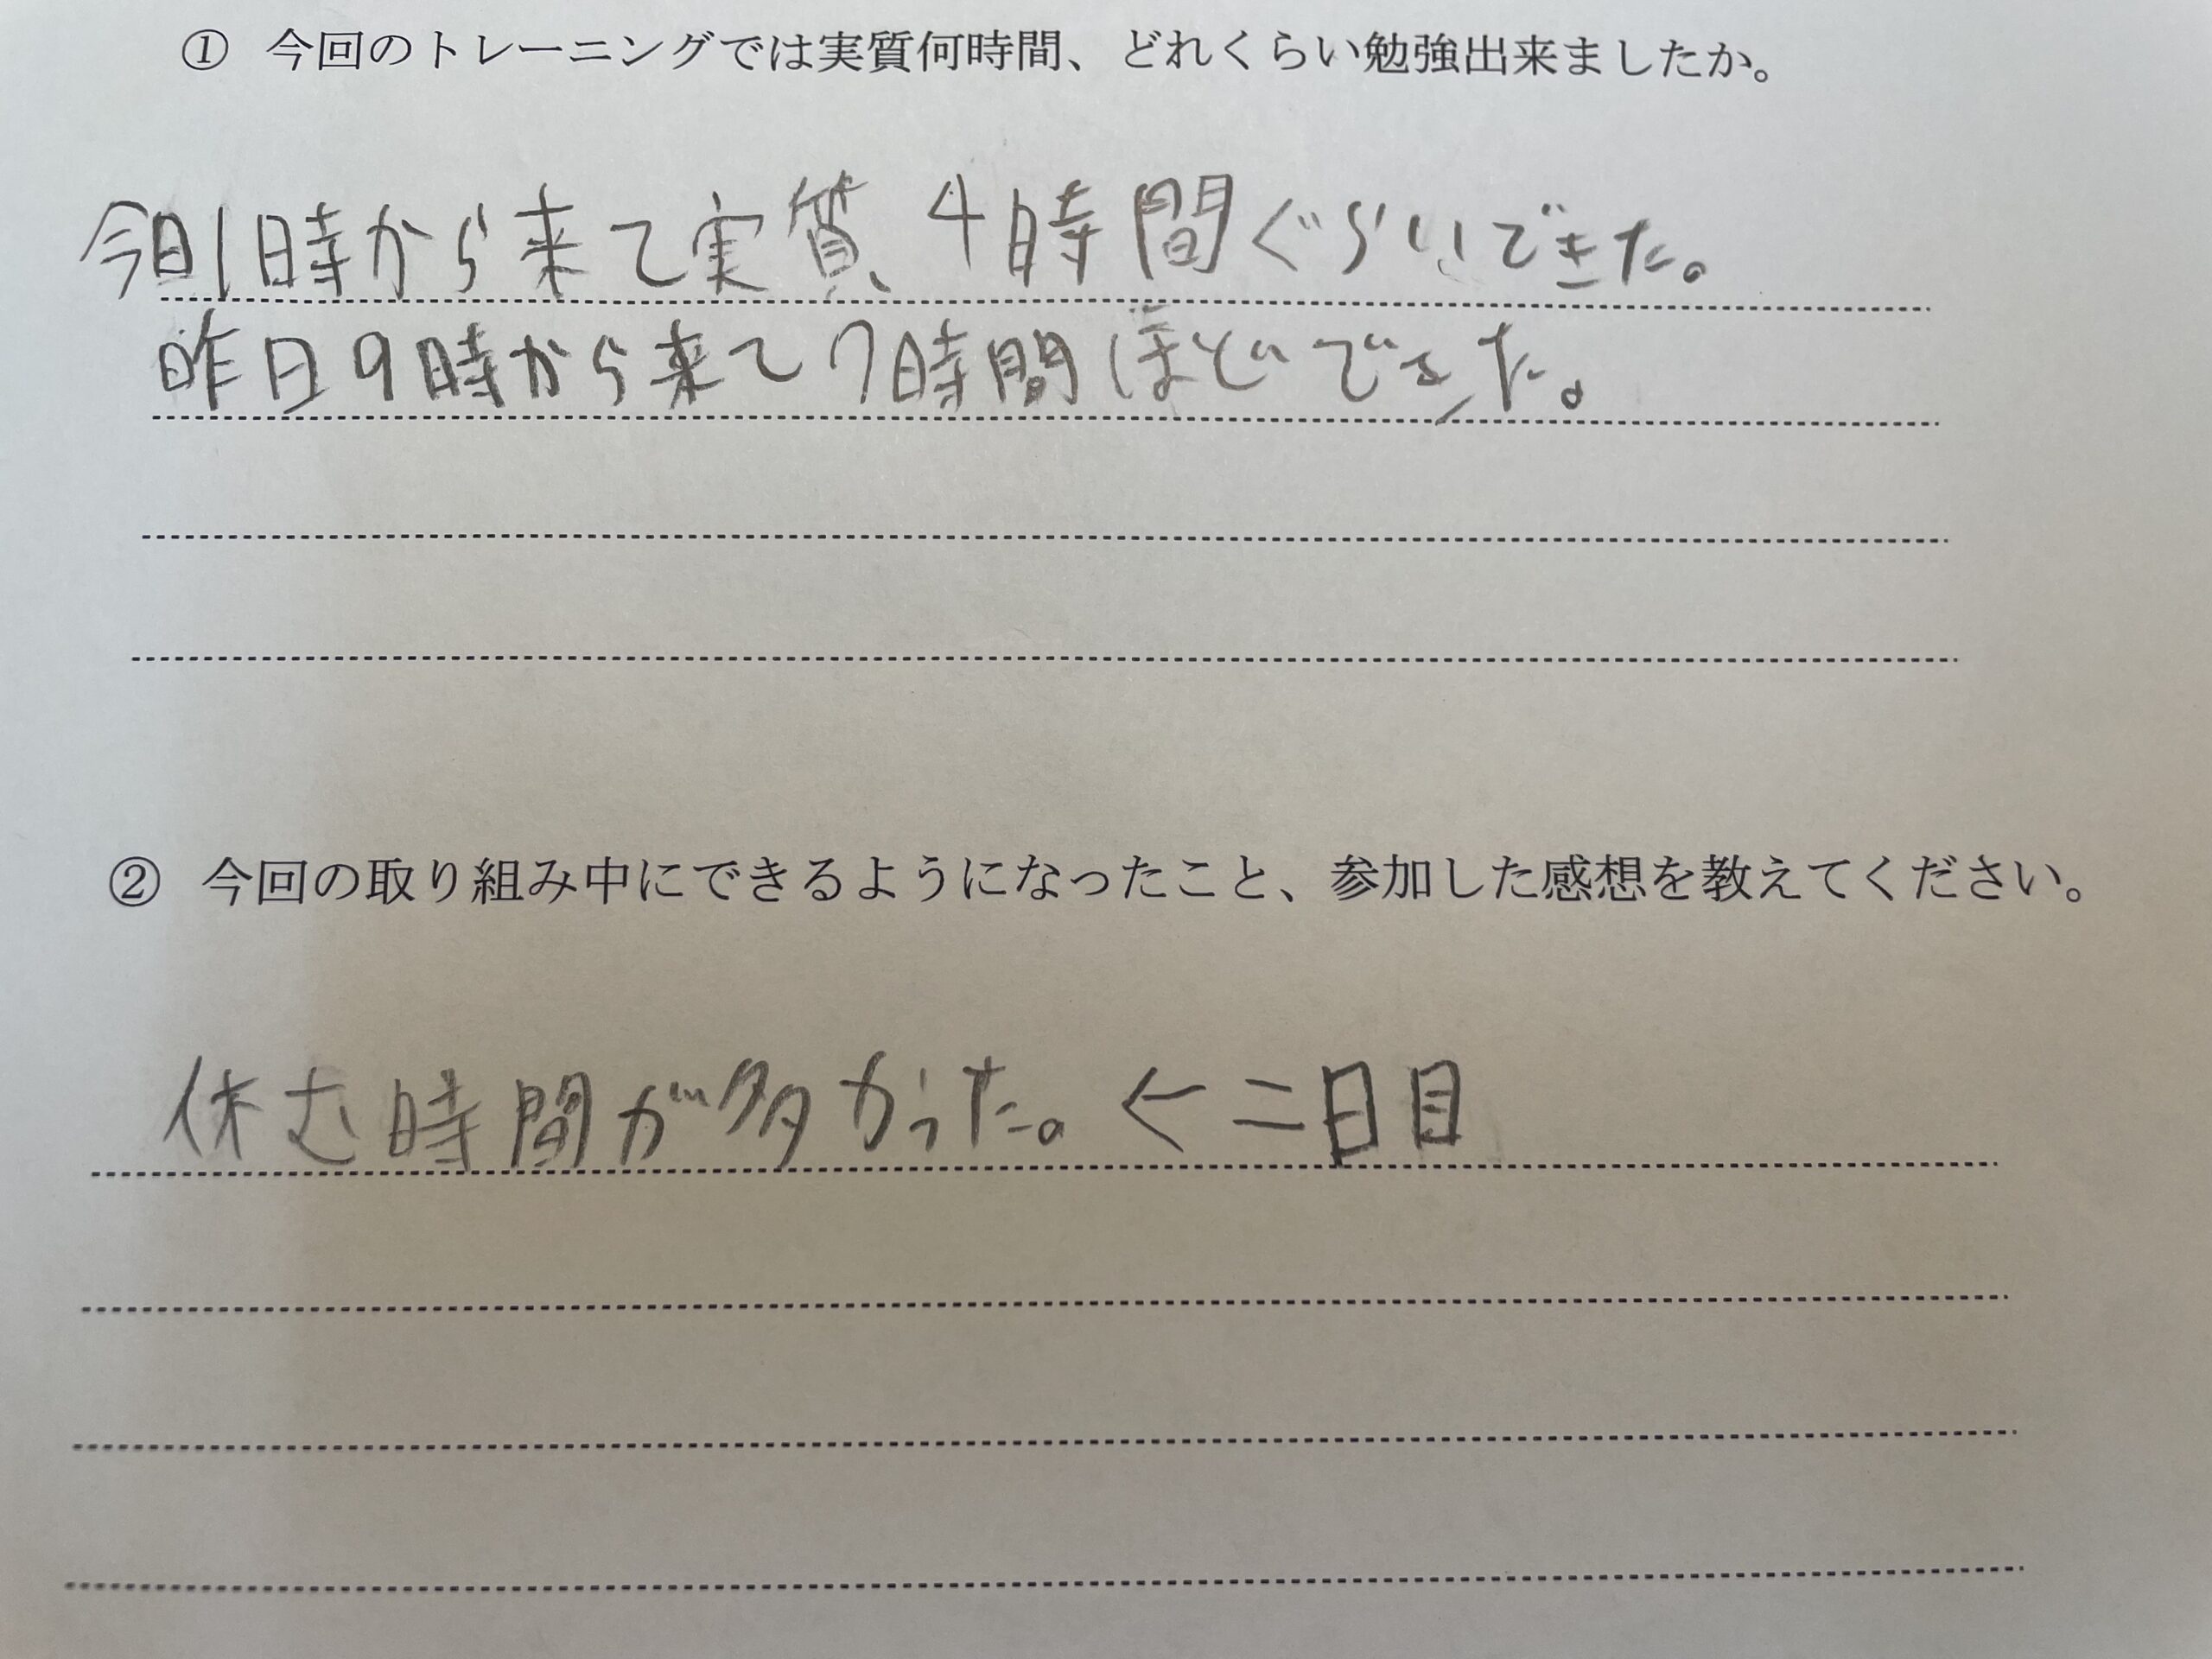 ① 今回のトレーニングでは実質何時間、どれくらい勉強出来ましたか。
今日1時から来て実質、4時間ぐらいできた。
昨日9時から来て7時間ほどできた。
② 今回の取り組み中にできるようになったこと、参加した感想を教えてください。
休む時間が多かった。←二日目